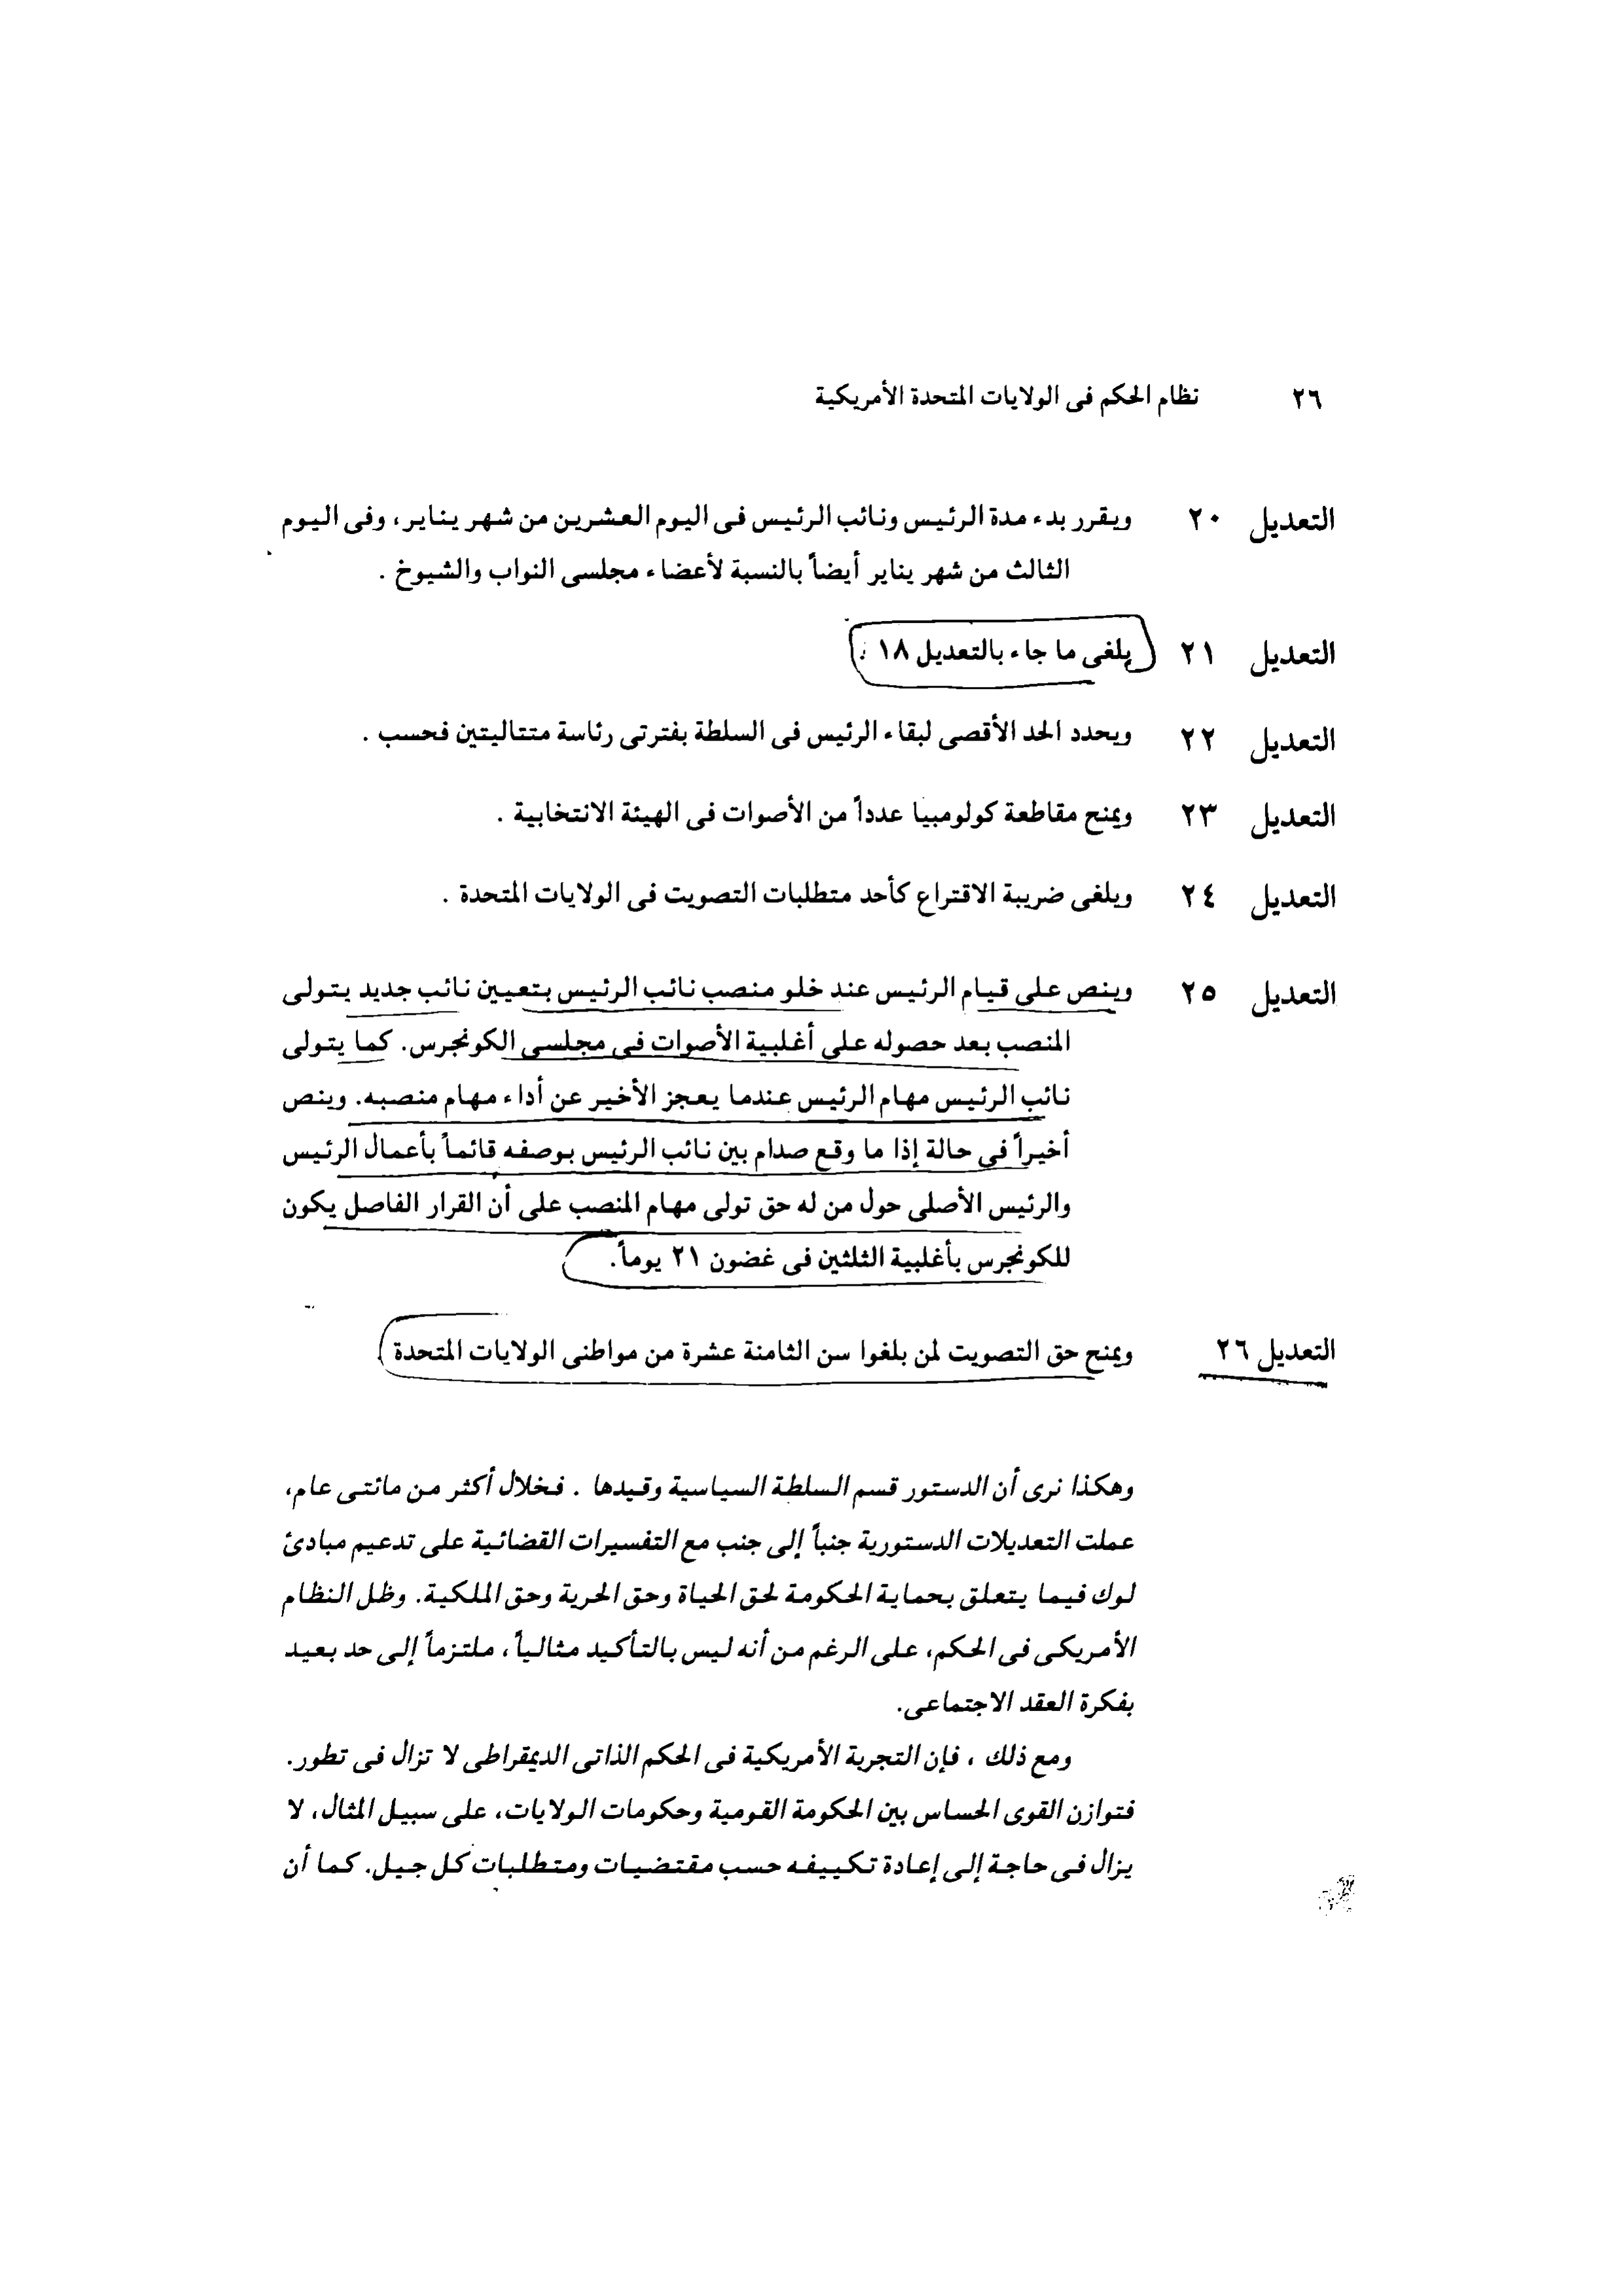 ٢٦ نظام الحكم فى الولايات المتحدة الأمريكية
التعديل ٢٠ ويقرر بدء مدة الرئيس ونائب الرئيس فى اليوم العشرين من شهر يناير، وفى اليوم
الثالث من شهر يناير أيضاً بالنسبة لأعضاء مجلسى النواب والشيوخ .
التعديل ٢١ يلغى ما جاء بالتعديل ١٨ .
التعديل ٢٢ ويحدد الحد الأقصى لبقاء الرئيس فى السلطة بفترتى رئاسة متتاليتين فحسب .
التعديل ٢٣ ويمنح مقاطعة كولومبيا عدداً من الأصوات فى الهيئة الانتخابية .
التعديل ٢٤ ويلغى ضريبة الاقتراع كأحد متطلبات التصويت فى الولايات المتحدة .
التعديل ٢٥ وينص على قيام الرئيس عند خلو منصب نائب الرئيس بتعيين نائب جديد يتولى
المنصب بعد حصوله على أغلبية الأصوات فى مجلسى الكونجرس. كما يتولى
نائب الرئيس مهام الرئيس عندما يعجز الأخير عن أداء مهام منصبه. وينص
أخيراً فى حالة إذا ما وقع صدام بين نائب الرئيس بوصفه قائماً بأعمال الرئيس
والرئيس الأصلى حول من له حق تولى مهام المنصب على أن القرار الفاصل يكون
للكونجرس بأغلبية الثلثين فى غضون ٢١ يوماً.
التعديل ٢٦ ويمنح حق التصويت لمن بلغوا سن الثامنة عشرة من مواطنى الولايات المتحدة .
وهكذا نرى أن الدستور قسم السلطة السياسية وقيدها . فخلال أكثر من مائتى عام،
عملت التعديلات الدستورية جنباً إلى جنب مع التفسيرات القضائية على تدعيم مبادئ
لوك فيما يتعلق بحماية الحكومة لحق الحياة وحق الحرية وحق الملكية. وظل النظام
الأمريكى فى الحكم، على الرغم من أنه ليس بالتأكيد مثالياً، ملتزماً إلى حد بعيد
بفكرة العقد الاجتماعى.
ومع ذلك ، فإن التجربة الأمريكية فى الحكم الذاتى الديمقراطى لا تزال فى تطور.
فتوازن القوى الحساس بين الحكومة القومية وحكومات الولايات، على سبيل المثال، لا
يزال فى حاجة إلى إعادة تكييفه حسب مقتضيات ومتطلبات كل جيل. كما أن